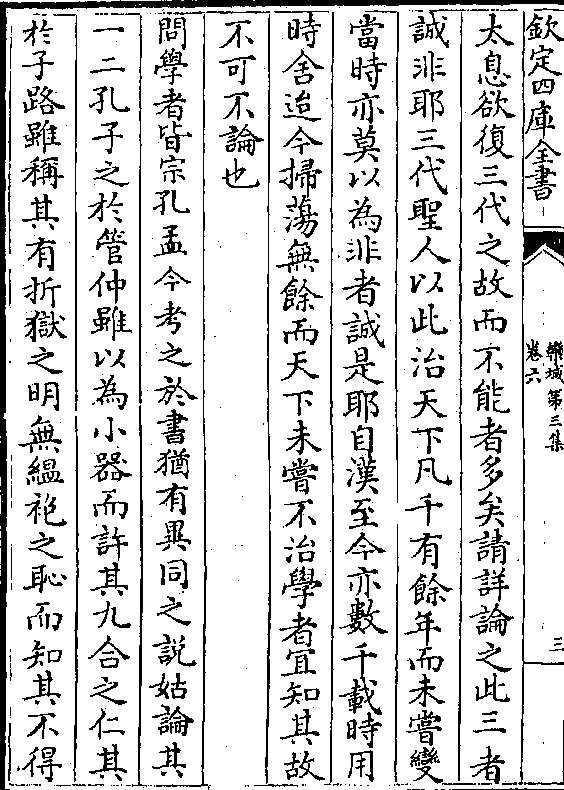 欽定四庫全書
欒城第三集
卷六
三
太息欲復三代之故而不能者多矣請詳論之此三者
誠非耶三代聖人以此治天下凡千有餘年而未嘗變
當時亦莫以為非者誠是耶自漢至今亦數千載時用
時舍迨今掃蕩無餘而天下未嘗不治學者宜知其故
不可不論也
問學者皆宗孔孟今考之於書猶有異同之説姑論其
一二孔子之於管仲雖以為小器而許其九合之仁其
於子路雖稱其有折獄之明無緼袍之恥而知其不得